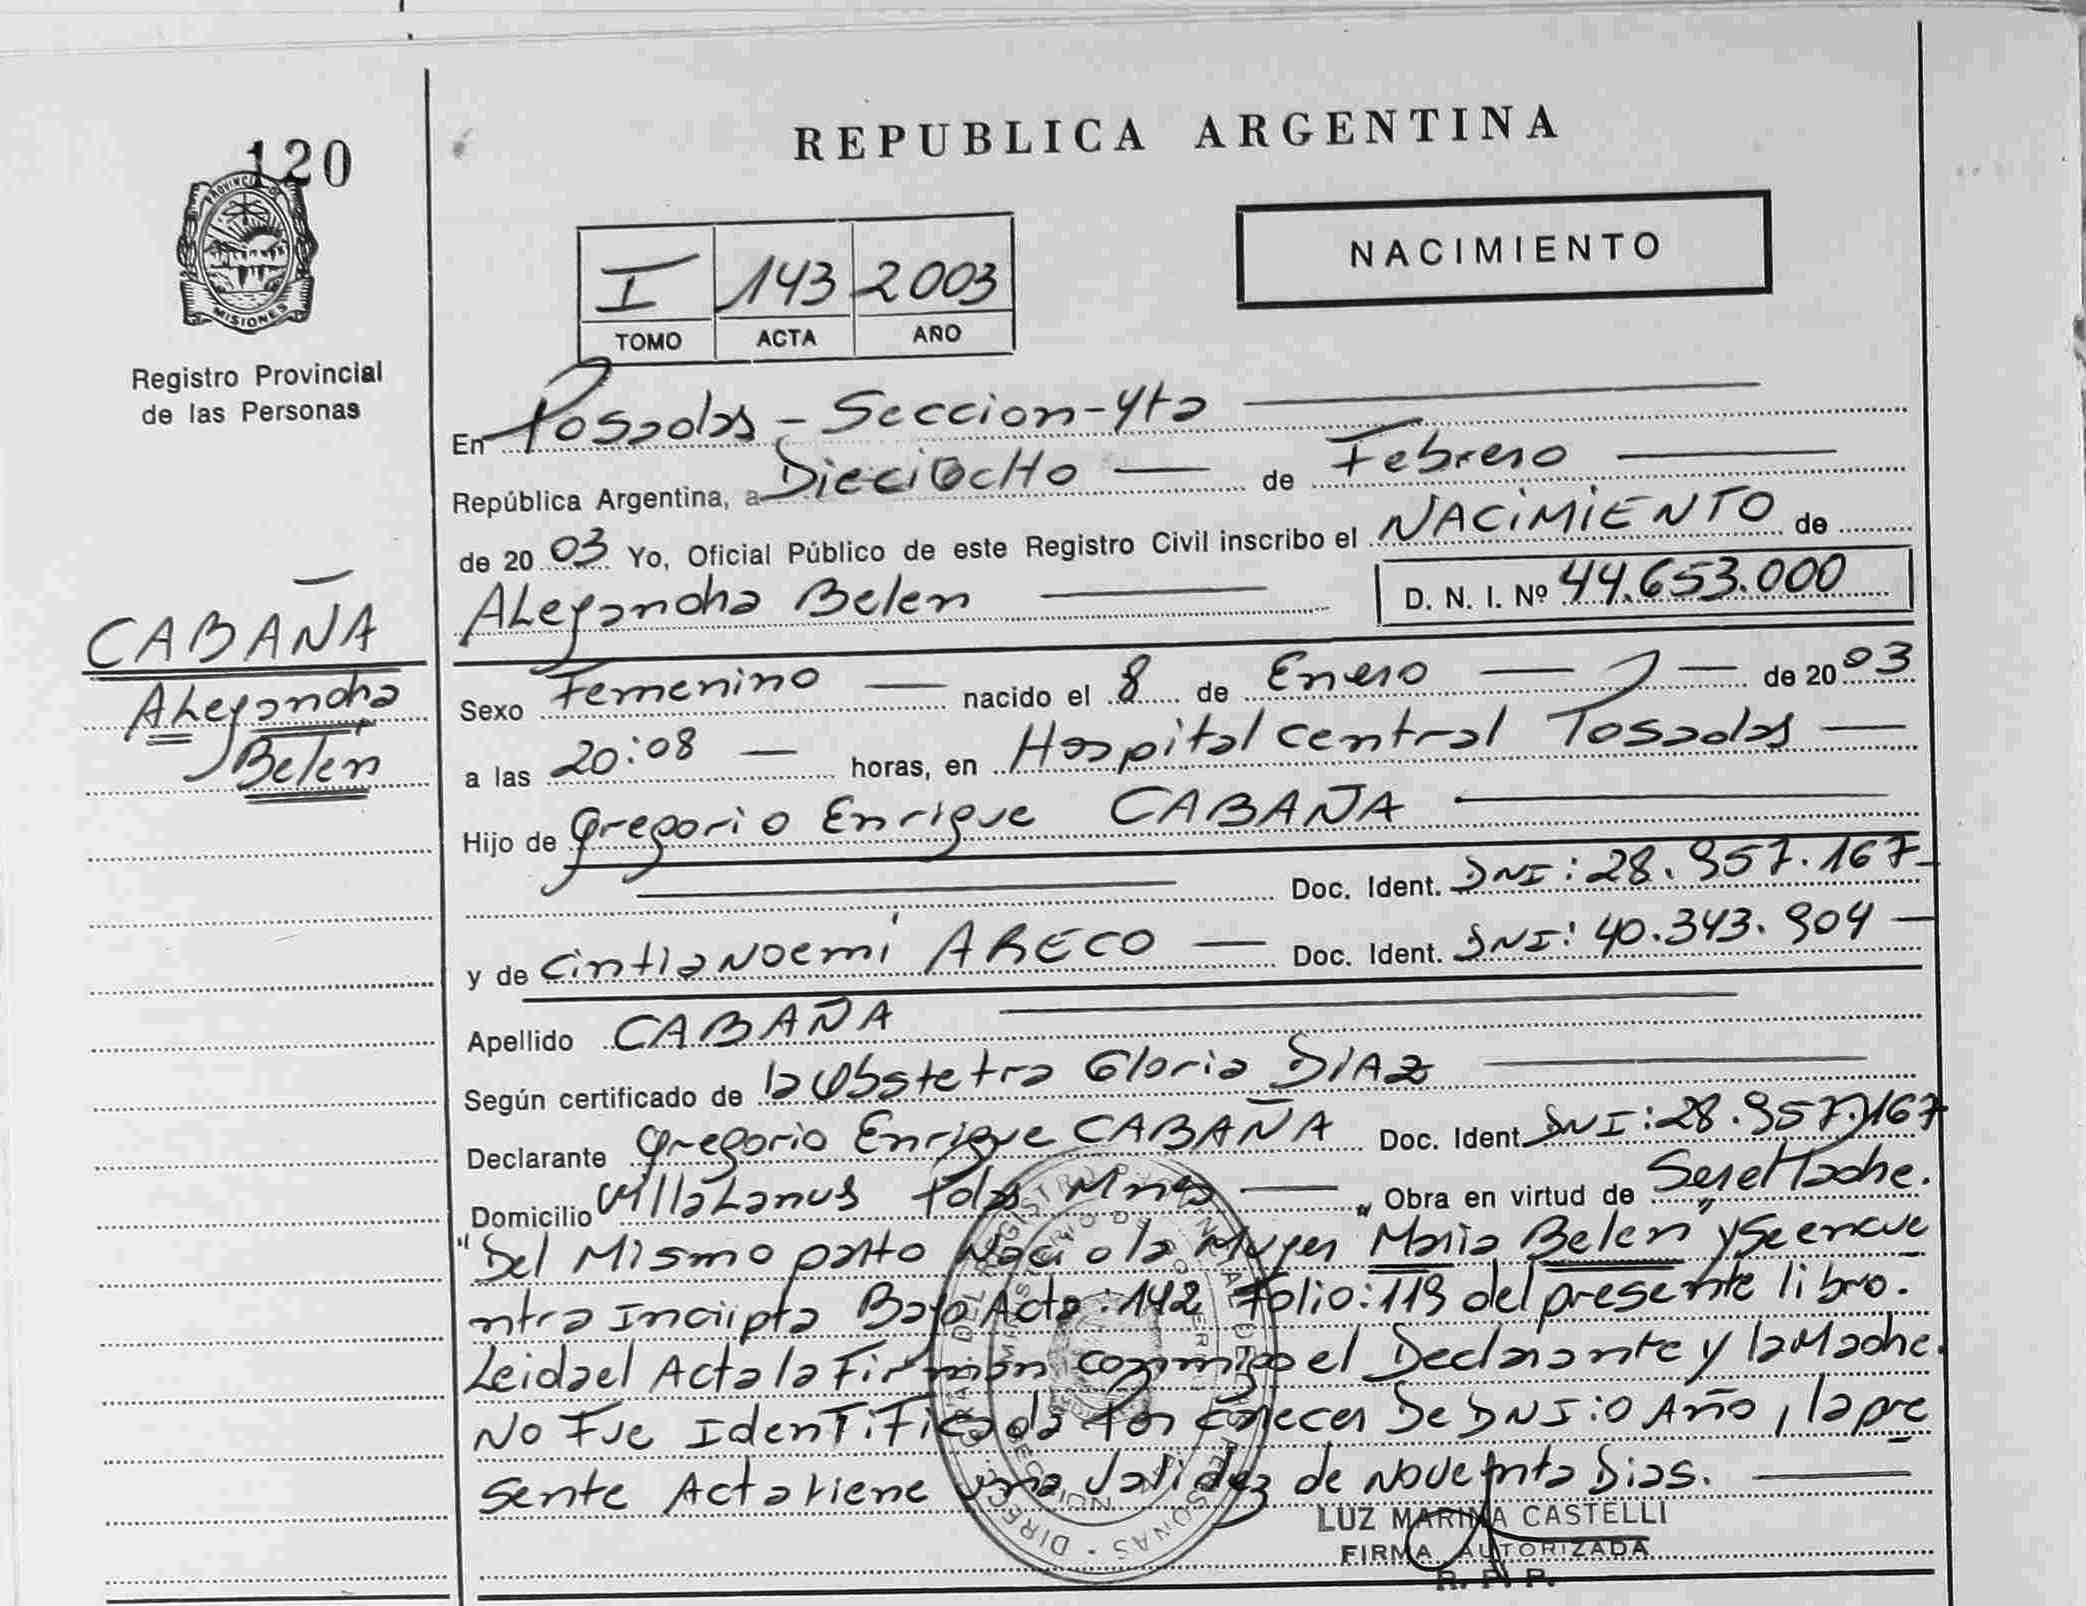 120
REPUBLICA ARGENTINA
PROVINCIA DE
MISIONES
Registro Provincial
de las Personas
NACIMIENTO
I 143 2003
TOMO ACTA AÑO
En Posadas - Seccion - 4ta
República Argentina, a DieciOcHo de Febrero
de 20 03 Yo, Oficial Público de este Registro Civil inscribo el NACIMIENTO de
ALejandra Belen D. N. I. Nº 44.653.000
CABAÑA
ALejandra
Belen
Sexo Femenino nacido el 8 de Enero de 20 03
a las 20:08 horas, en Hospital central Posadas
Hijo de Gregorio Enrique CABAÑA
Doc. Ident. DNI: 28.957.167
y de Cintia Noemí ARECO Doc. Ident. DNI: 40.343.904
Apellido CABAÑA
Según certificado de la Obstetra Gloria DIAZ
Declarante Gregorio Enrique CABAÑA Doc. Ident. DNI: 28.957.167
Domicilio Villa Lanus Pdas Mnes Obra en virtud de Ser el Padre.
"Del Mismo parto Nació la Mujer Maria Belen" y Se encue
ntra Inscripta Bajo Acta: 142 Folio: 119 del presente libro.
Leida el Acta la Firman conmigo el Declarante y la Madre.
No Fue IdentiFicada Por Carecer De DNI: 0 Año, la pre
sente Acta tiene una Validez de Noventa Dias.
LUZ MARINA CASTELLI
FIRMA AUTORIZADA
R. P. P.